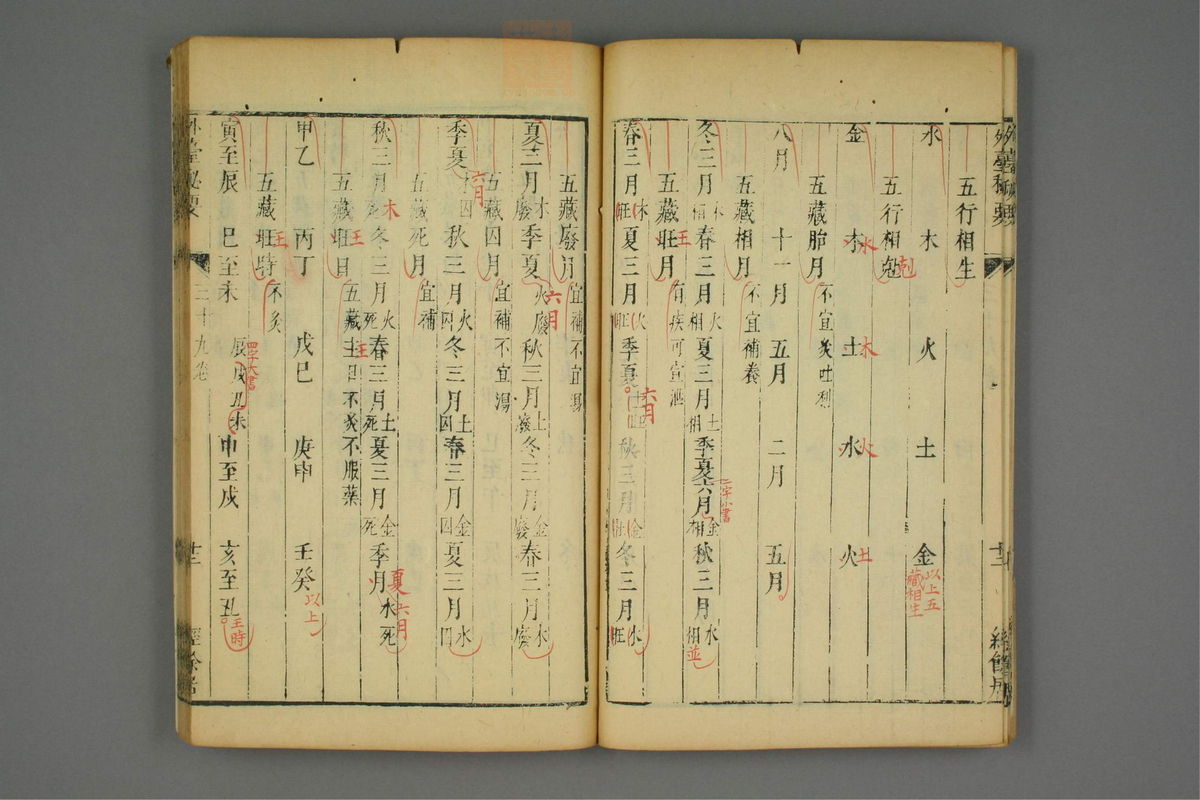 五行相生
水 木 火 土 金 以上五藏相生
五行相勀 剋
金 木 土 水 火
水 木 火 土
五藏胎月 不宜灸吐利
八月 十一月 五月 二月 五月
五藏相月 不宜補養
冬三月 木相 春三月 火相 夏三月 土相 季夏六月 金相 秋三月 水相 並
二字小書
五藏旺月 王 有疾可宣洒
春三月 木旺 夏三月 火旺 季夏 六月 土旺 秋三月 金旺 冬三月 水旺
五藏廢月 宜補不宜瀉
夏三月 木廢 季夏 六月 火廢 秋三月 土廢 冬三月 金廢 春三月 水廢
五藏囚月 宜補不宜湯
季夏 六月 木囚 秋三月 火囚 冬三月 土囚 春三月 金囚 夏三月 水囚
五藏死月 宜補
秋三月 木死 冬三月 火死 春三月 土死 夏三月 金死 季夏月 六月 水死
五藏旺日 王 五藏主日不灸不服藥 王
甲乙 丙丁 戊巳 庚申 壬癸 以上
五藏旺時 王 不灸
寅至辰 巳至未 辰戌丑未 申至戌 亥至丑 王時
四字大書
外臺秘要 三十九卷 十二 經餘居